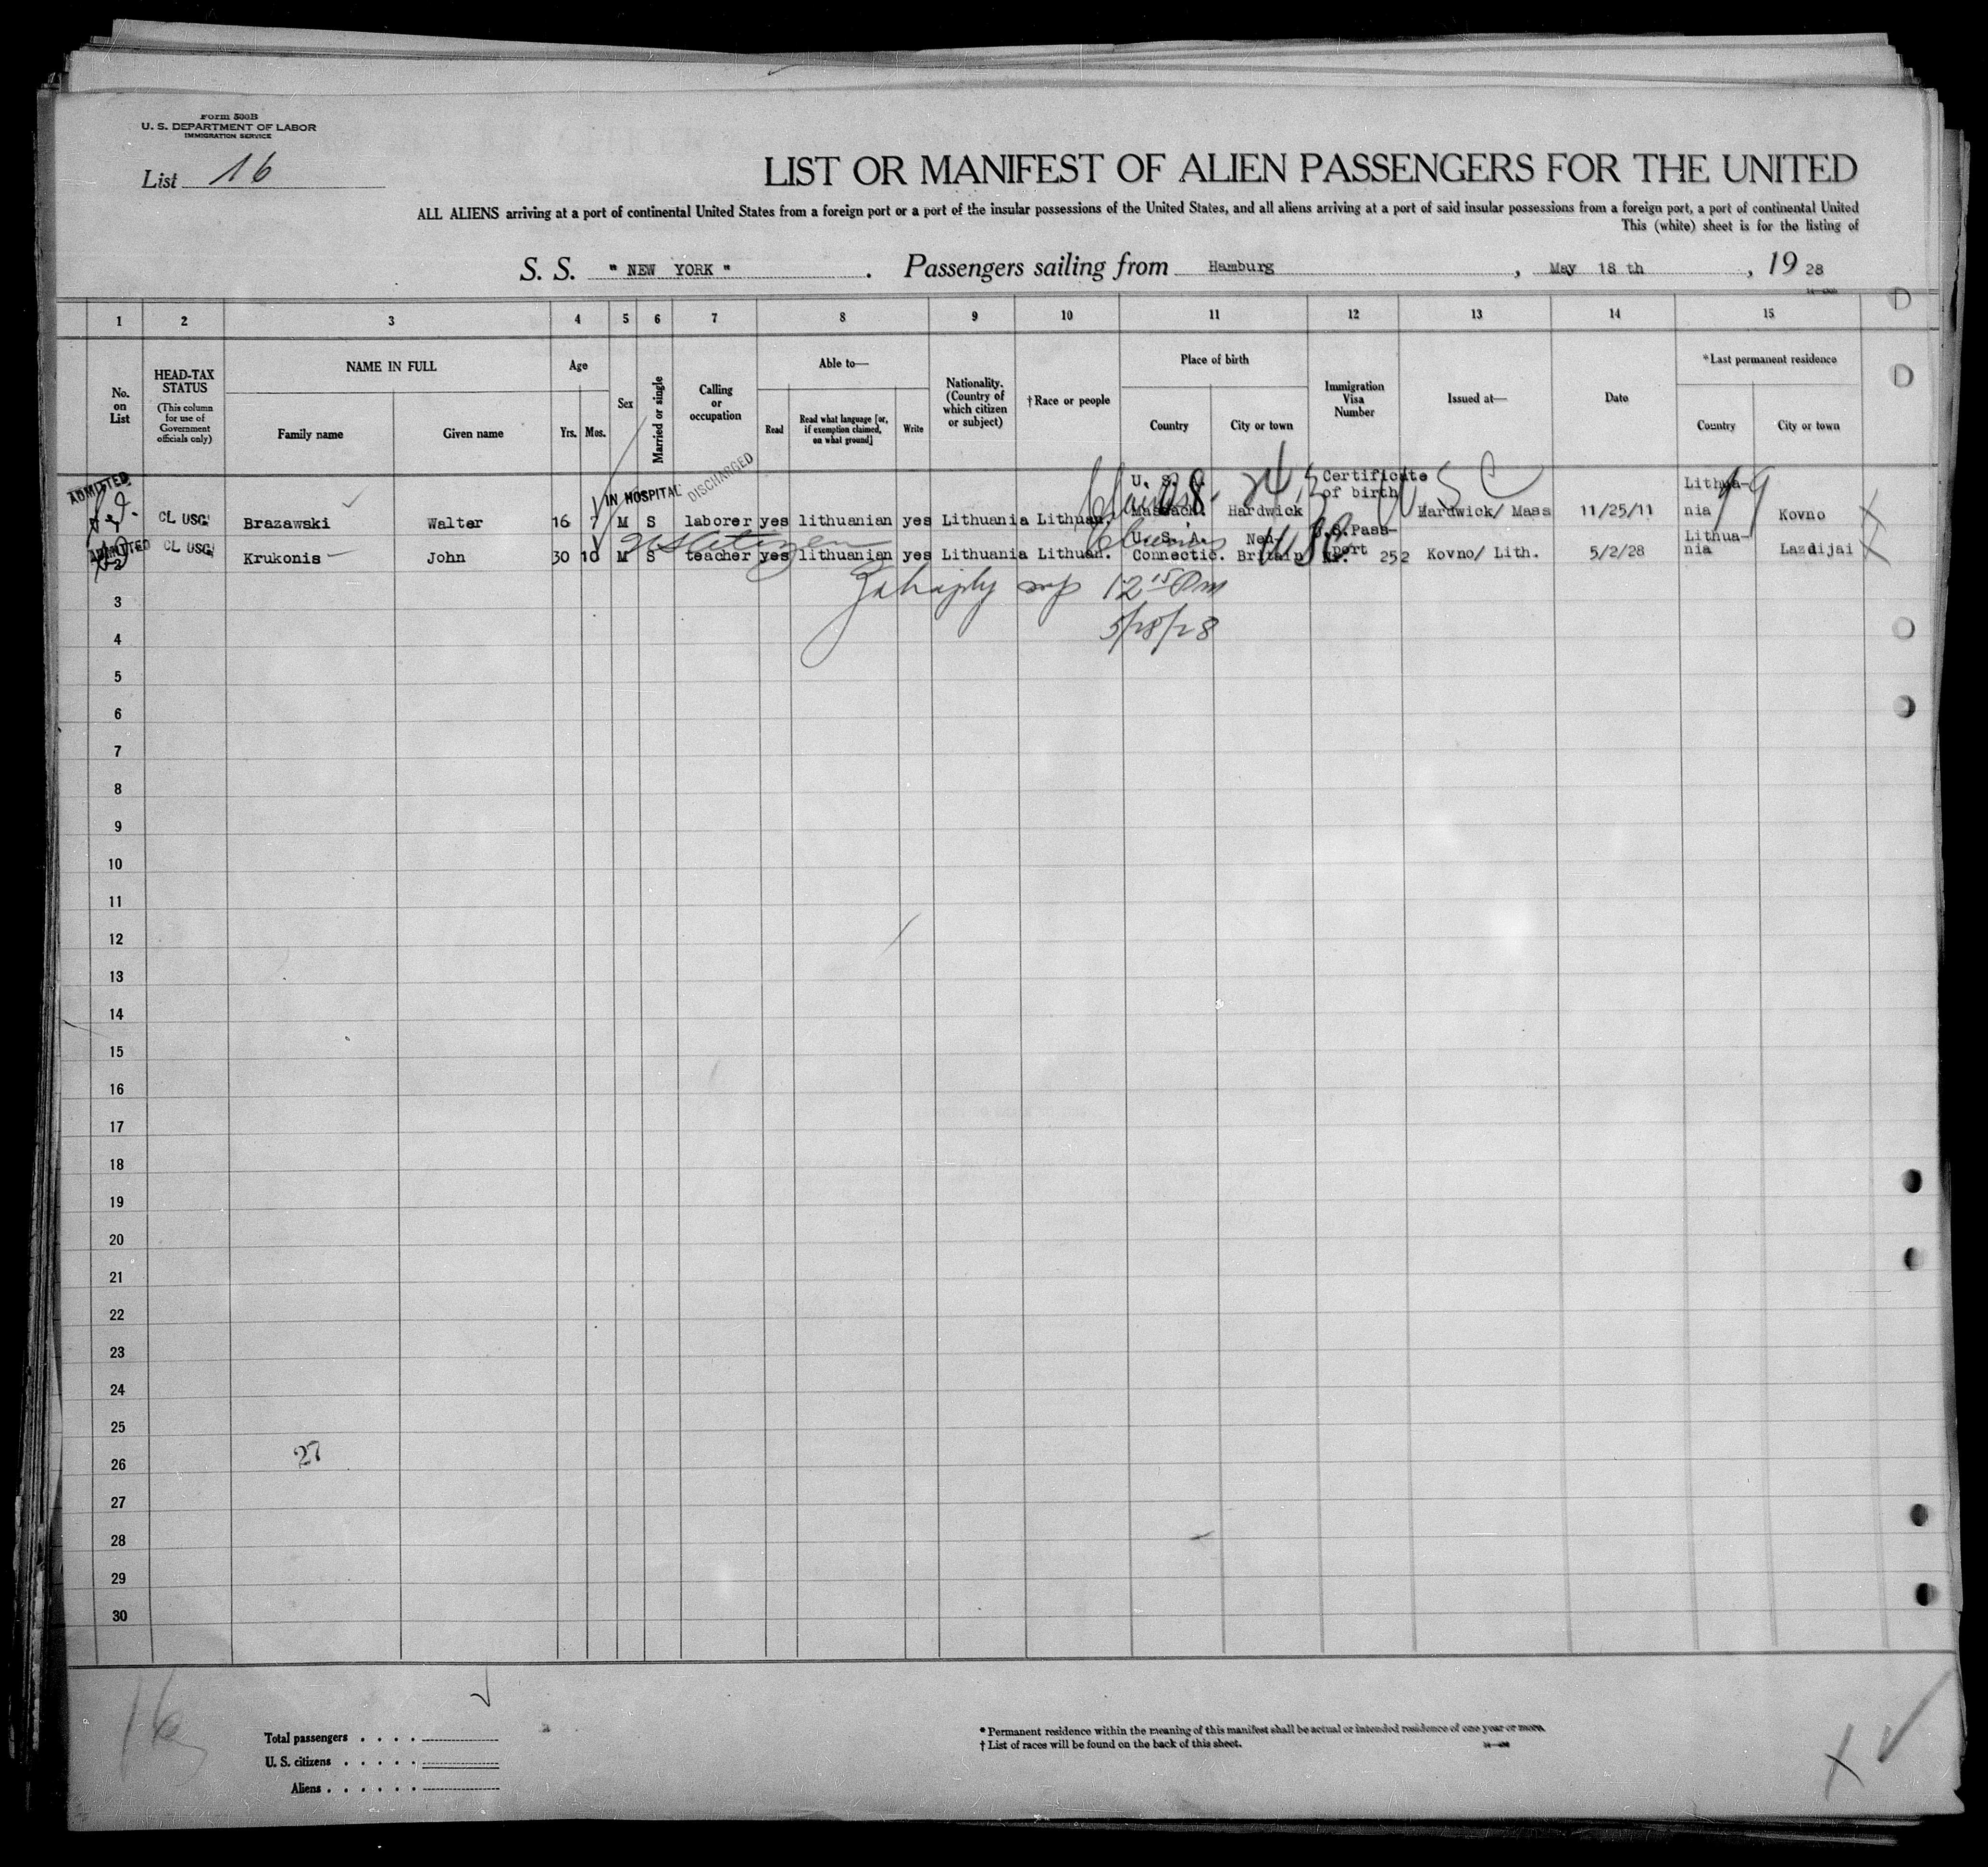 Form 500B
U. S. DEPARTMENT OF LABOR
IMMIGRATION SERVICE
List 16
LIST OR MANIFEST OF ALIEN PASSENGERS FOR THE UNITED
ALL ALIENS arriving at a port of continental United States from a foreign port or a port of the insular possessions of the United States, and all aliens arriving at a port of said insular possessions from a foreign port, a port of continental United
This (white) sheet is for the listing of
S. S. " NEW YORK " . Passengers sailing from Hamburg , May 18 th , 19 28
1 2 3 4 5 6 7 8 9 10 11 12 13 14 15
No. on List
HEAD-TAX STATUS (This column for use of Government officials only)
NAME IN FULL
Family name
Given name
Age
Yrs.
Mos.
Sex
Married or single
Calling or occupation
Able to—
Read
Read what language [or, if exemption claimed, on what ground]
Write
Nationality. (Country of which citizen or subject)
†Race or people
Place of birth
Country
City or town
Immigration Visa Number
Issued at—
Date
*Last permanent residence
Country
City or town
ADMITTED
IN HOSPITAL
DISCHARGED
CL USC Brazawski Walter 16 7 M S laborer yes lithuanian yes Lithuania Lithuan. U. S. Massach. Hardwick Certificate of birth Hardwick/ Mass 11/25/11 Lithua-nia Kovno
U S C
ADMITTED
US Citizen
CL USC Krukonis John 30 10 M S teacher yes lithuanian yes Lithuania Lithuan. U. S. A. Connectic. New Britain U.S.Pass-port Nr. 252 Kovno/ Lith. 5/2/28 Lithua-nia Lazdijai
USC
12 15 Pm
5/28/28
3
4
5
6
7
8
9
10
11
12
13
14
15
16
17
18
19
20
21
22
23
24
25
27
26
27
28
29
30
16
Total passengers . . . .
U. S. citizens . . . . .
Aliens . . . . . .
* Permanent residence within the meaning of this manifest shall be actual or intended residence of one year or more.
† List of races will be found on the back of this sheet.